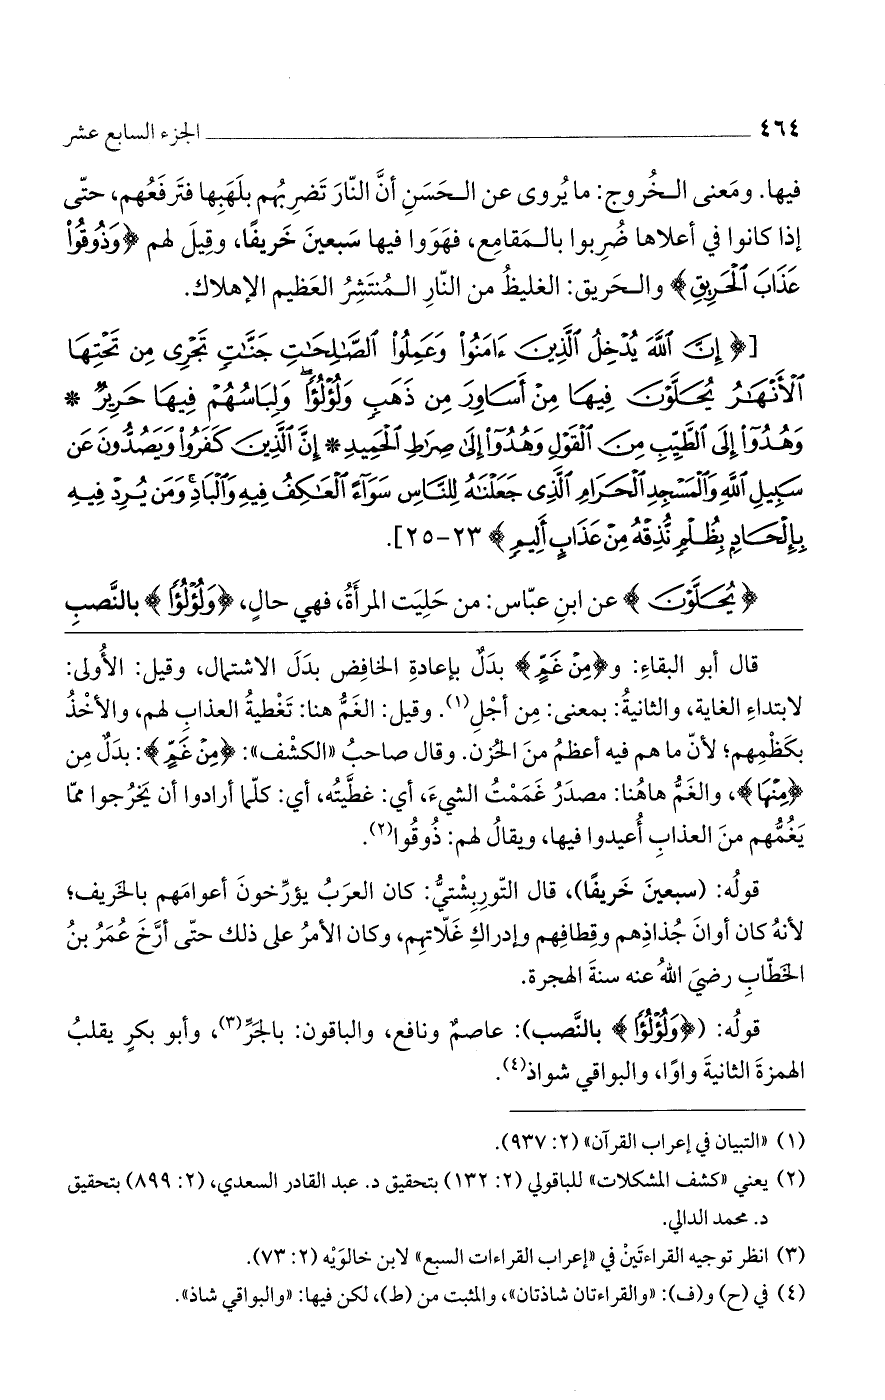 ٤٦٤ الجزء السابع عشر
فيها. ومَعنى الـخُروج: ما يُروى عن الـحَسَنِ أنَّ النّارَ تَضرِبُهم بلَهَبِها فتَرفَعُهم، حتّى
إذا كانوا في أعلاها ضُرِبوا بالـمَقامِعِ، فهَوَوا فيها سَبعينَ خَريفًا، وقِيلَ لهم ﴿وَذُوقُوا۟
عَذَابَ ٱلْحَرِيقِ﴾ والـحَريق: الغليظُ من النّارِ الـمُنتَشِرُ العَظيم الإهلاك.
[﴿إِنَّ ٱللَّهَ يُدْخِلُ ٱلَّذِينَ ءَامَنُوا۟ وَعَمِلُوا۟ ٱلصَّـٰلِحَـٰتِ جَنَّـٰتٍ تَجْرِى مِن تَحْتِهَا
ٱلْأَنْهَـٰرُ يُحَلَّوْنَ فِيهَا مِنْ أَسَاوِرَ مِن ذَهَبٍ وَلُؤْلُؤًا ۖ وَلِبَاسُهُمْ فِيهَا حَرِيرٌ *
وَهُدُوٓا۟ إِلَى ٱلطَّيِّبِ مِنَ ٱلْقَوْلِ وَهُدُوٓا۟ إِلَىٰ صِرَٰطِ ٱلْحَمِيدِ * إِنَّ ٱلَّذِينَ كَفَرُوا۟ وَيَصُدُّونَ عَن
سَبِيلِ ٱللَّهِ وَٱلْمَسْجِدِ ٱلْحَرَامِ ٱلَّذِى جَعَلْنَـٰهُ لِلنَّاسِ سَوَآءً ٱلْعَـٰكِفُ فِيهِ وَٱلْبَادِ ۚ وَمَن يُرِدْ فِيهِ
بِإِلْحَادٍۭ بِظُلْمٍ نُّذِقْهُ مِنْ عَذَابٍ أَلِيمٍ﴾ ٢٣-٢٥].
﴿يُحَلَّوْنَ﴾ عن ابنِ عبّاس: من حَلِيَت المرأَةُ، فهي حالٍ، ﴿وَلُؤْلُؤًا﴾ بالنَّصبِ
قال أبو البقاءِ: و﴿مِنْ غَمٍّ﴾ بدَلٌ بإعادةِ الخافِضِ بدَلَ الاشتمال، وقيل: الأُولى:
لابتداءِ الغاية، والثانيةُ: بمعنى: مِن أجْلِ(١). وقيل: الغَمُّ هنا: تَغْطيةُ العذابِ لهم، والأخْذُ
بكَظْمِهم؛ لأنّ ما هم فيه أعظمُ منَ الحُزن. وقال صاحبُ «الكشْف»: ﴿مِنْ غَمٍّ﴾: بدَلٌ مِن
﴿مِنْهَا﴾، والغَمُّ هاهُنا: مصدَرُ غَمَمْتُ الشيءَ، أي: غطَّيتُه، أي: كلّما أرادوا أن يَخرُجوا ممّا
يَغُمُّهم منَ العذابِ أُعيدوا فيها، ويقالُ لهم: ذُوقُوا(٢).
قولُه: (سبعينَ خَريفًا)، قال التّوربِشْتيُّ: كان العرَبُ يؤرِّخونَ أعوامَهم بالخَريف؛
لأنهُ كان أوانَ جُذاذِهم وقِطافِهم وإدراكِ غَلّاتِهم، وكان الأمرُ على ذلك حتّى أرَّخَ عُمَرُ بنُ
الخطّابِ رضيَ اللهُ عنه سنةَ الهجرة.
قولُه: (﴿وَلُؤْلُؤًا﴾ بالنَّصب): عاصمٌ ونافع، والباقون: بالجَرِّ(٣)، وأبو بكرٍ يقلبُ
الهمزةَ الثانيةَ واوًا، والبواقي شواذ(٤).
(١) «التبيان في إعراب القرآن» (٢: ٩٣٧).
(٢) يعني «كشف المشكلات» للباقولي (٢: ١٣٢) بتحقيق د. عبد القادر السعدي، (٢: ٨٩٩) بتحقيق
د. محمد الدالي.
(٣) انظر توجيه القراءتَينْ في «إعراب القراءات السبع» لابن خالوَيْه (٢: ٧٣).
(٤) في (ح) و(ف): «والقراءتان شاذتان»، والمثبت من (ط)، لكن فيها: «والبواقي شاذ».